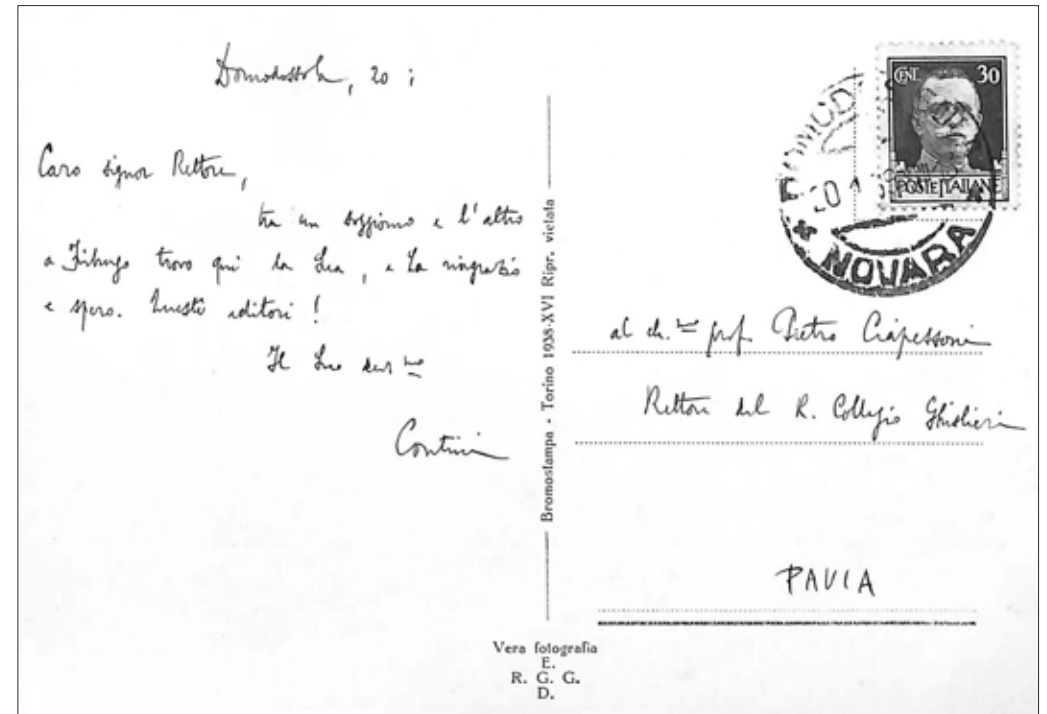 Domodossola, 20 i
Caro signor Rettore,
tra un soggiorno e l'altro
a Friburgo trovo qui la Sua, e La ringrazio
e spero. Questi editori!
Il Suo dev.mo
Contini
Bromostampa - Torino 1938-XVI Ripr. vietata
Vera fotografia
E.
R. G. G.
D.
CENT. 30
POSTE ITALIANE
NOVARA
al ch.mo prof. Pietro Ciapessoni
Rettore del R. Collegio Ghislieri
PAVIA